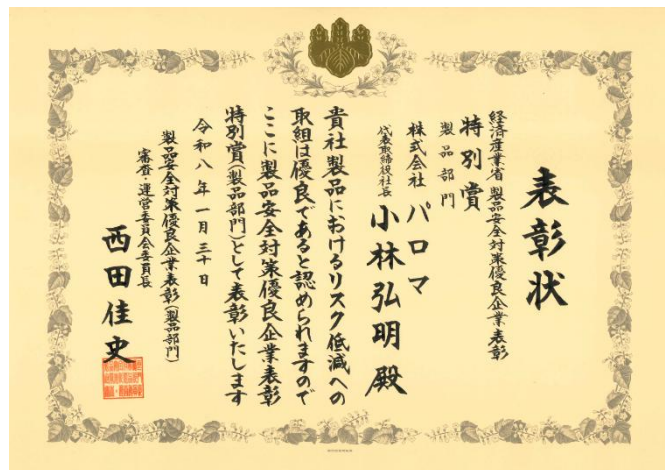 表彰状
経済産業省 製品安全対策優良企業表彰
特別賞
製品部門
株式会社 パロマ
代表取締役社長 小林弘明殿
貴社製品におけるリスク低減への
取組は優良であると認められますので
ここに製品安全対策優良企業表彰
特別賞(製品部門)として表彰いたします
令和八年一月三十日
製品安全対策優良企業表彰(製品部門)
審査・運営委員会委員長
西田佳史